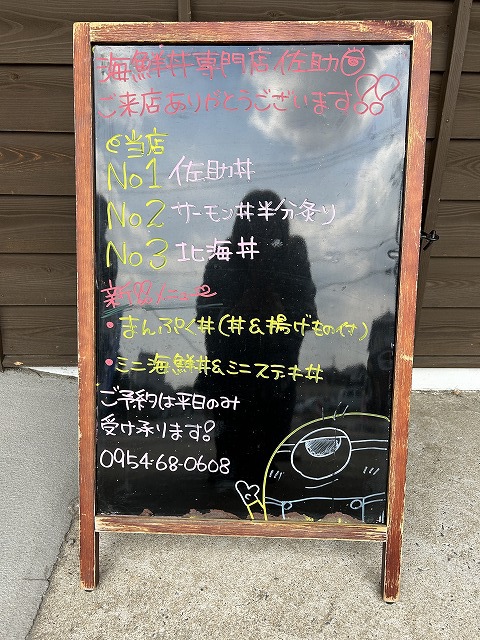 海鮮丼専門店 佐助
ご来店ありがとうございます!!
当店
No1 佐助丼
No2 サーモン丼半分炙り
No3 北海丼
新規メニュー
・まんぷく丼(丼&揚げもの付)
・ミニ海鮮丼&ミニステーキ丼
ご予約は平日のみ
受け承ります!
0954-68-0608